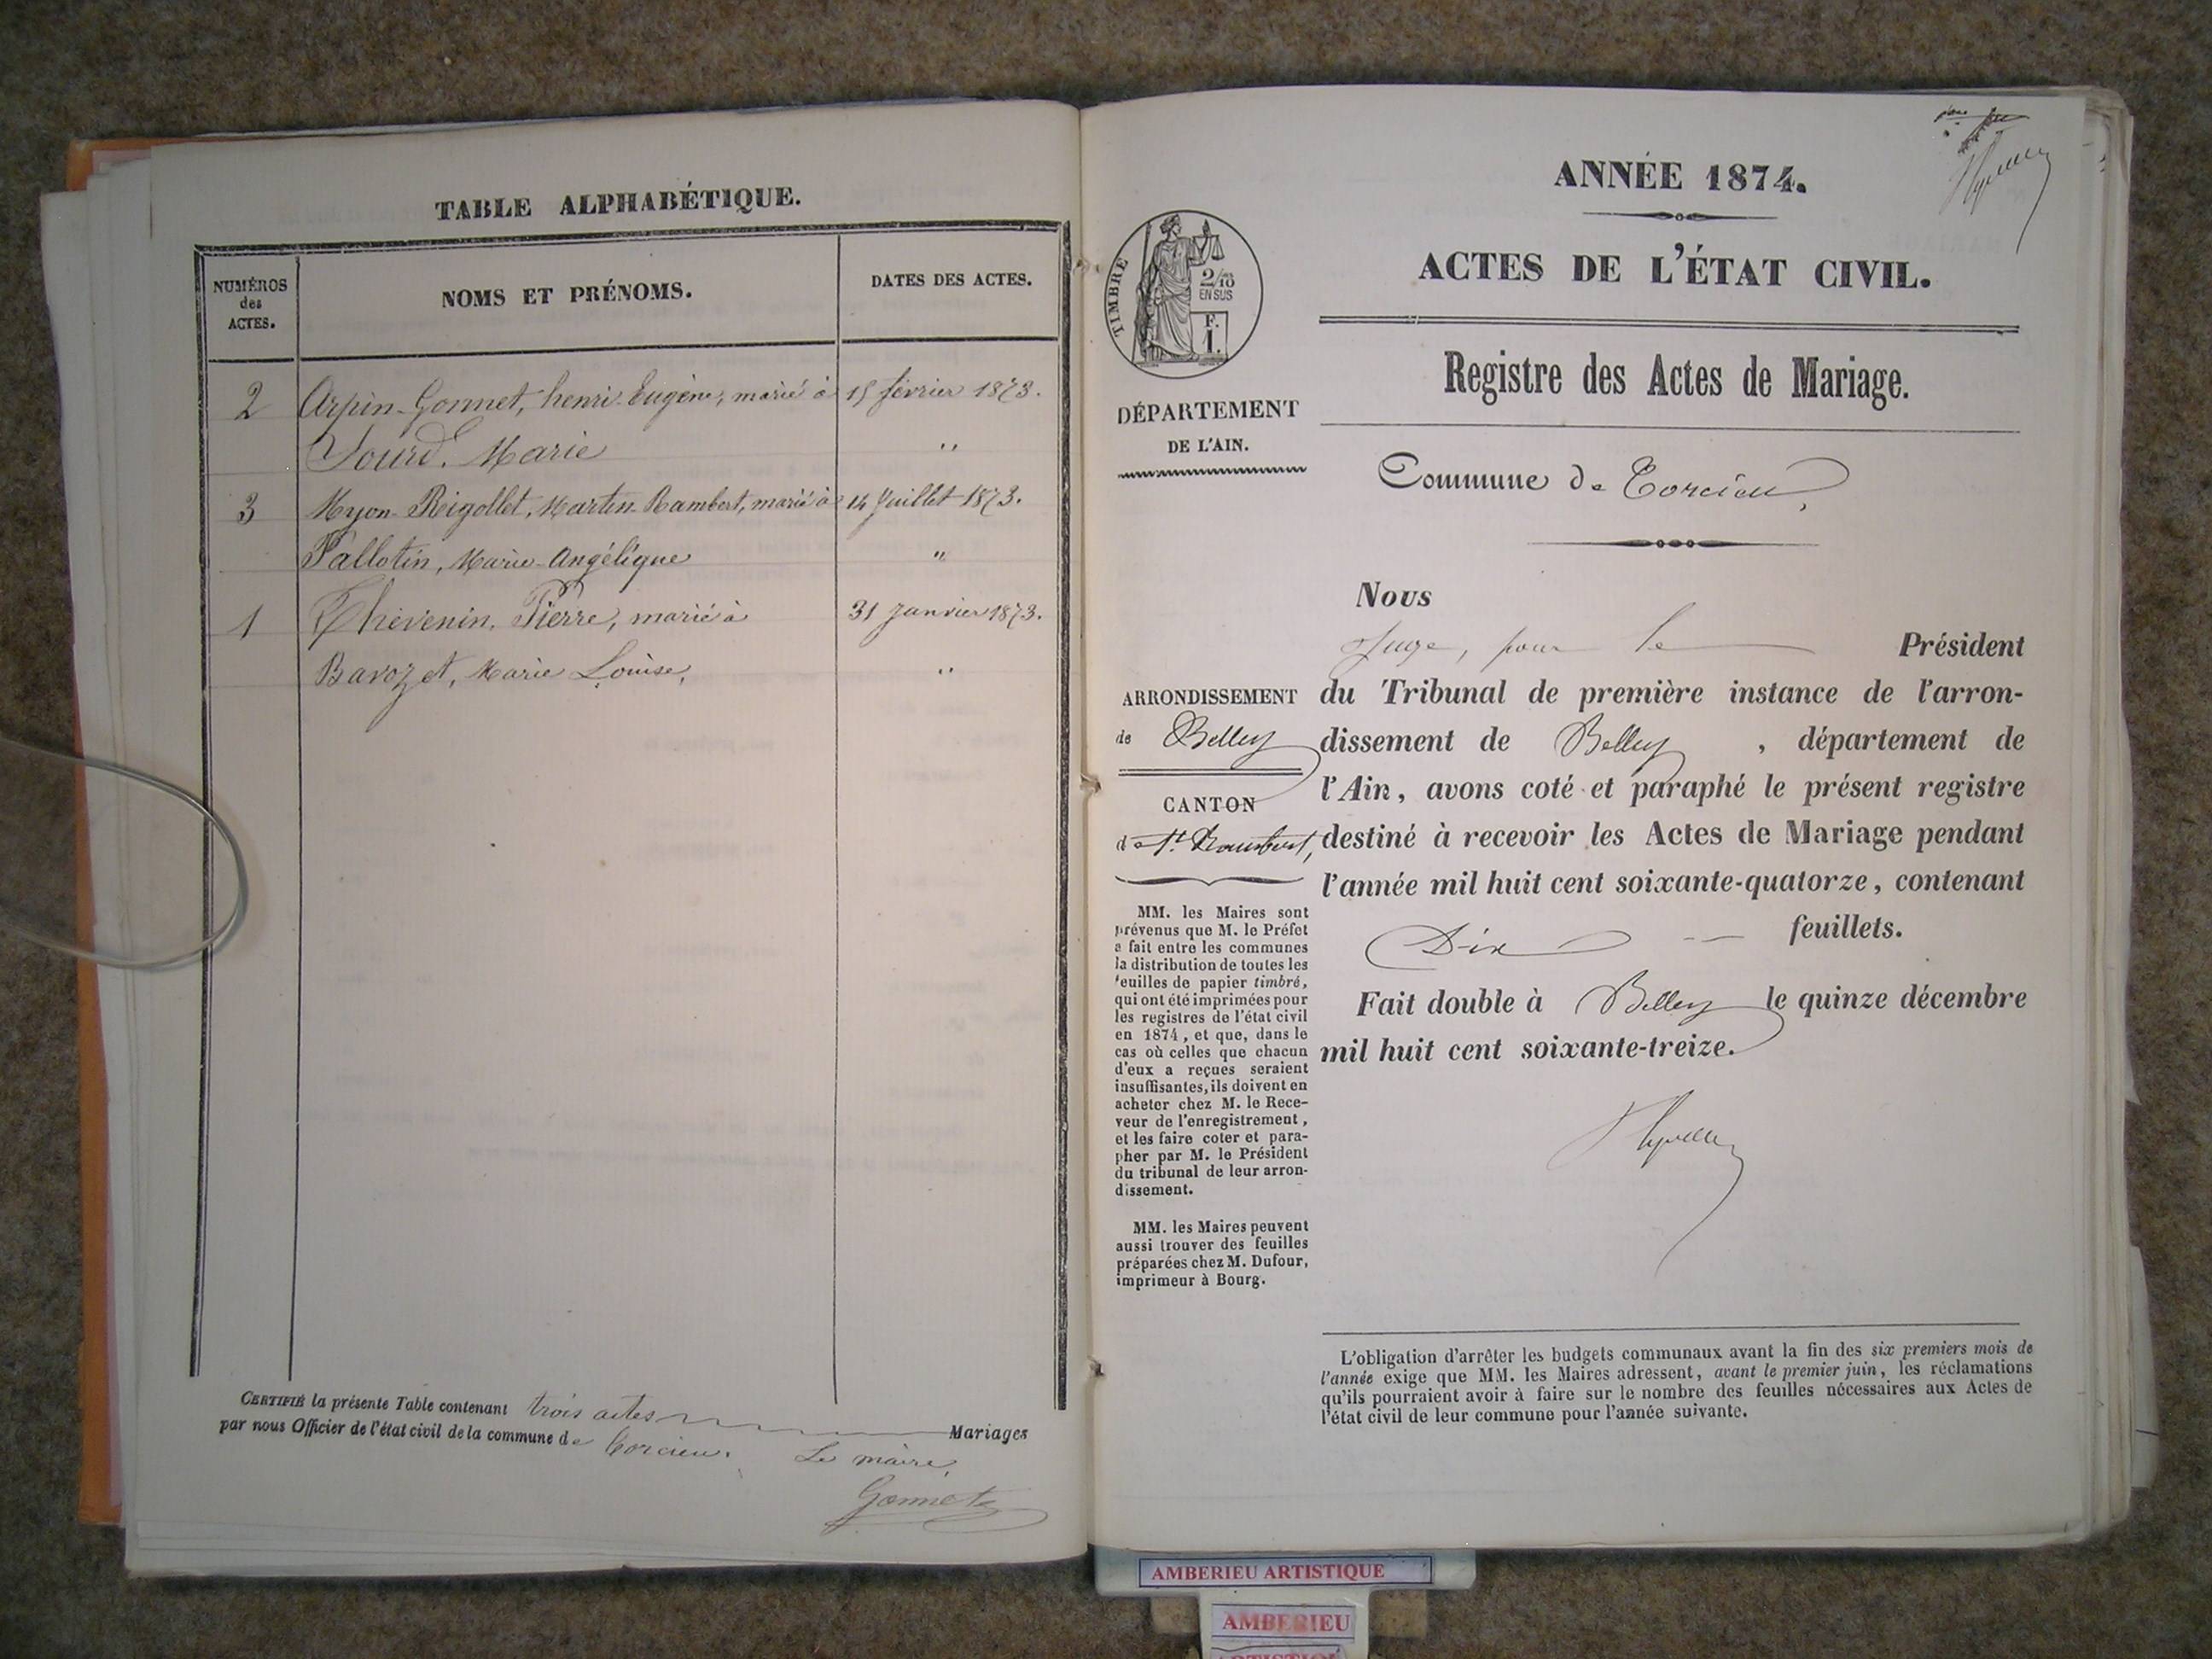 TABLE ALPHABÉTIQUE.
NUMÉROS
des
ACTES.
NOMS ET PRÉNOMS.
DATES DES ACTES.
2 Arpin-Gonnet, henri-Eugène, marié à 15 février 1873.
Sourd. Marie "
3 Myon-Rigollet, Martin-Rambert, marié à 14 Juillet 1873.
Pallotin, Marie-Angélique "
1 Thévenin, Pierre, marié à 31 Janvier 1873.
Bavozet, Marie Louise, "
CERTIFIÉ la présente Table contenant trois actes Mariages
par nous Officier de l'état civil de la commune de Torcieu. Le maire,
Gonnet
ANNÉE 1874.
ACTES DE L'ÉTAT CIVIL.
Registre des Actes de Mariage.
Commune de Torcieu,
TIMBRE
2/10
EN SUS
F.
1.
DÉPARTEMENT
DE L'AIN.
ARRONDISSEMENT
de Belley
CANTON
de St. Rambert,
MM. les Maires sont
prévenus que M. le Préfet
a fait entre les communes
la distribution de toutes les
feuilles de papier timbré,
qui ont été imprimées pour
les registres de l'état civil
en 1874, et que, dans le
cas où celles que chacun
d'eux a reçues seraient
insuffisantes, ils doivent en
acheter chez M. le Rece-
veur de l'enregistrement,
et les faire coter et para-
pher par M. le Président
du tribunal de leur arron-
dissement.
MM. les Maires peuvent
aussi trouver des feuilles
préparées chez M. Dufour,
imprimeur à Bourg.
Nous
Juge, pour le Président
du Tribunal de première instance de l'arron-
dissement de Belley, département de
l'Ain, avons coté et paraphé le présent registre
destiné à recevoir les Actes de Mariage pendant
l'année mil huit cent soixante-quatorze, contenant
Dix feuillets.
Fait double à Belley le quinze décembre
mil huit cent soixante-treize.
L'obligation d'arrêter les budgets communaux avant la fin des six premiers mois de
l'année exige que MM. les Maires adressent, avant le premier juin, les réclamations
qu'ils pourraient avoir à faire sur le nombre des feuilles nécessaires aux Actes de
l'état civil de leur commune pour l'année suivante.
AMBERIEU ARTISTIQUE
AMBERIEU
ARTISTIQUE